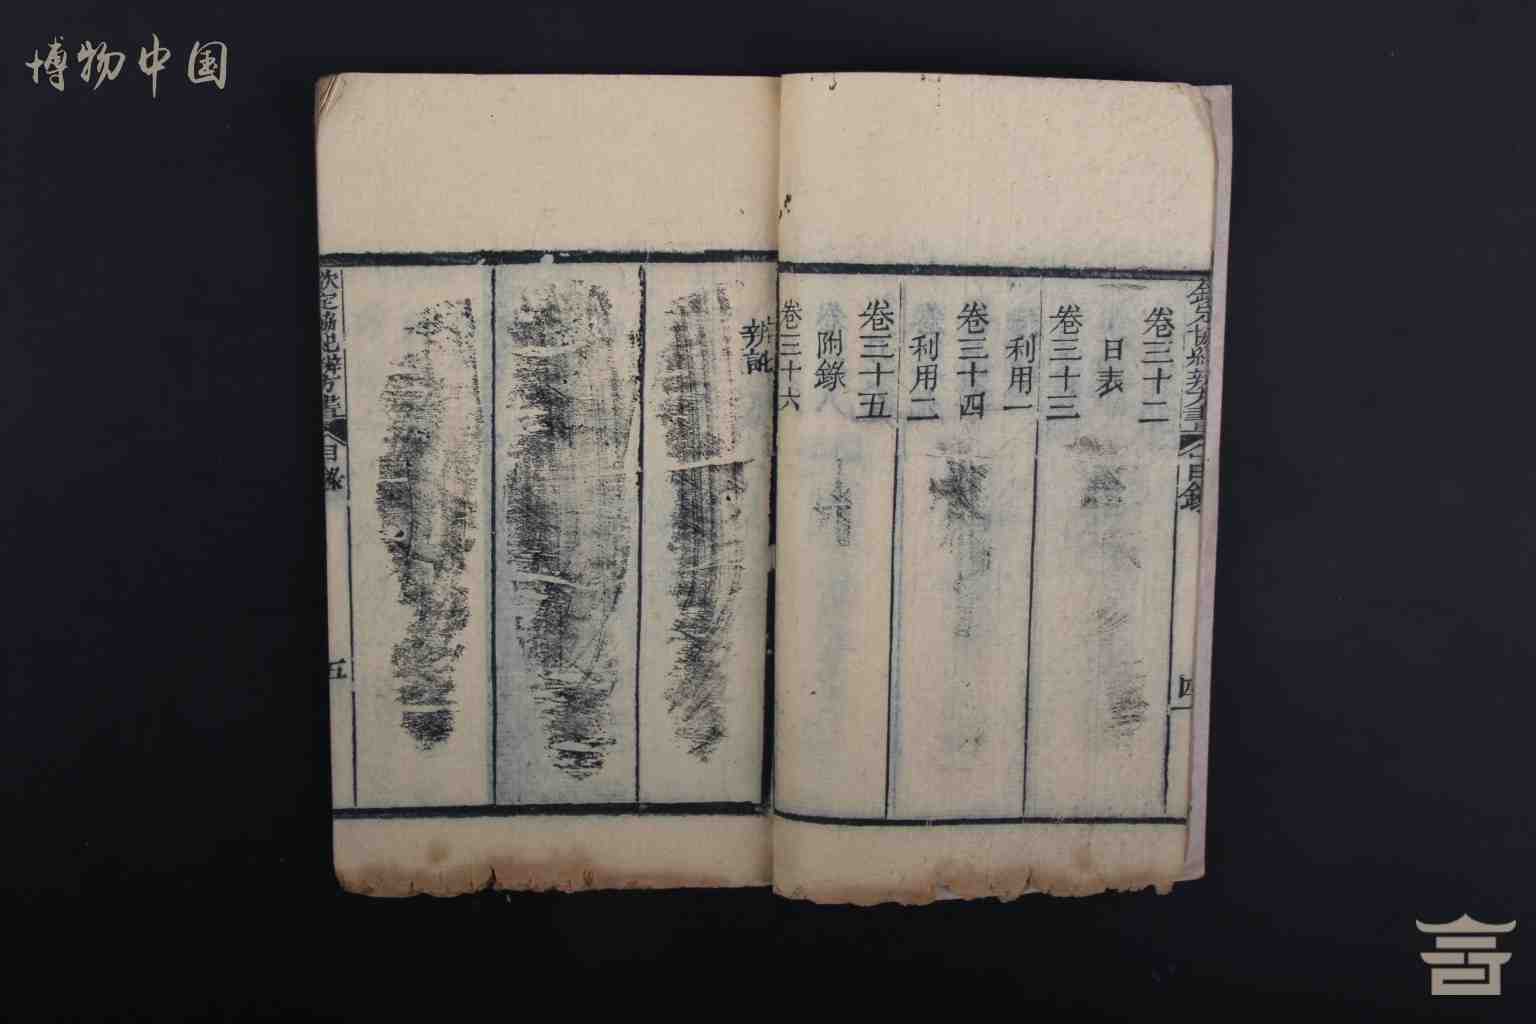 博物中国
欽定協紀辨方書 目錄 四
卷三十二
日表
卷三十三
利用一
卷三十四
利用二
卷三十五
附錄
卷三十六
辨訛
欽定協紀辨方書 目錄 五